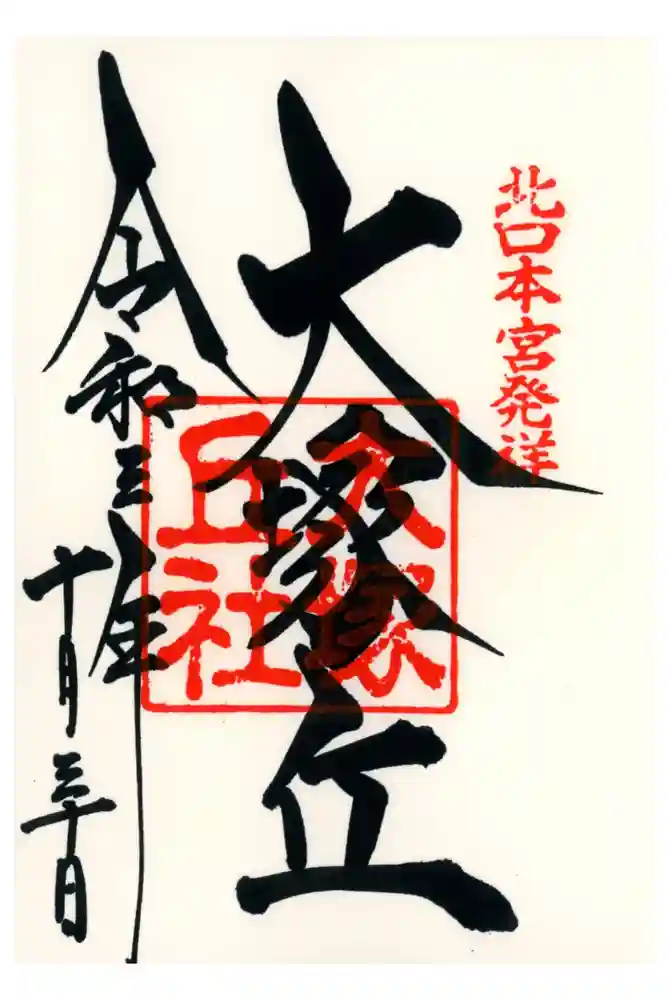 北口本宮発祥
大塚丘
大塚
丘社
令和三年
十月三十日